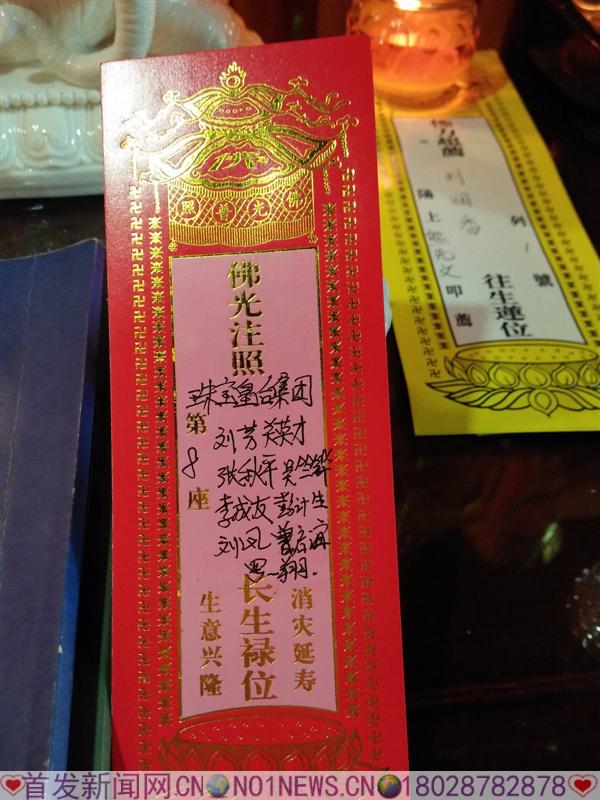 佛光普照
佛光注照
珠宝皇台集团
第8座
刘芳 关英才
张秋平 吴竺铧
李成友 彭计生
刘凤
长生禄位
消灾延寿
生意兴隆
佛力超薦
列1號
陽上 熊先文 叩薦
往生蓮位
首发新闻网CN NO1NEWS.CN 18028782878